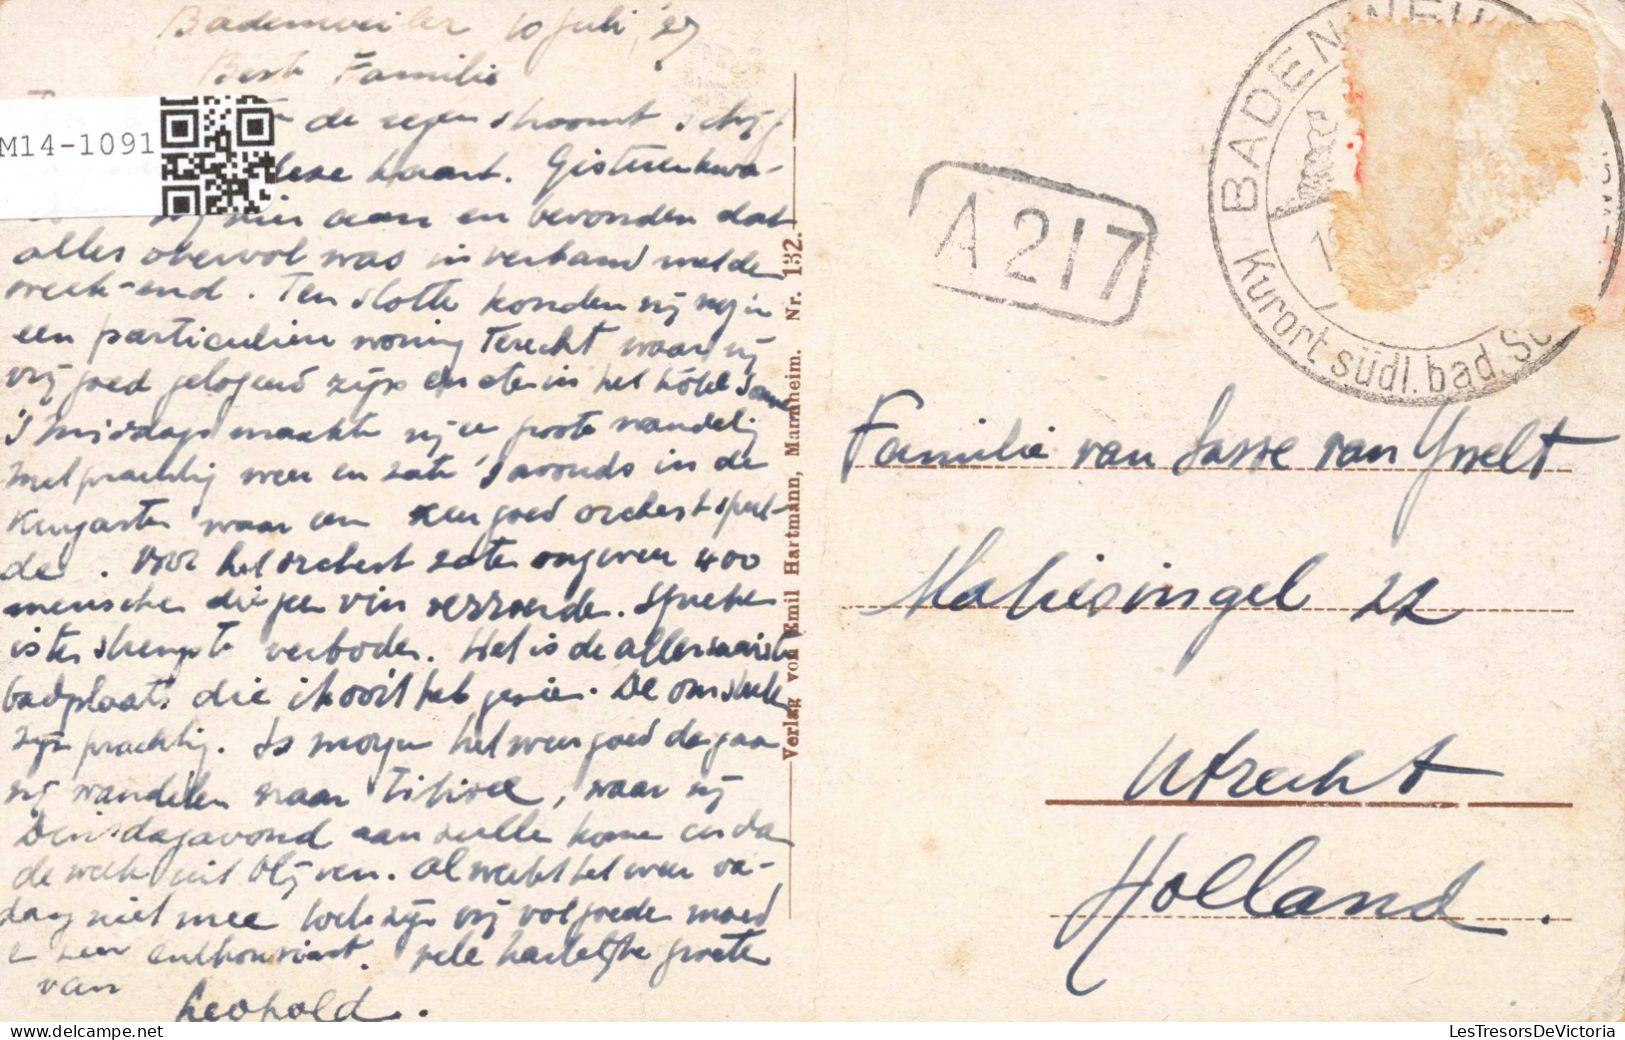 Badenweiler 10 Juli '29
Beste Familie
de regen stroomt schrijf
deze kaart. Gisteren kwa-
wij hier aan en bevonden dat
alles overvol was in verband met den
week-end. Ten slotte konden wij nog in
een particuliere woning terecht waar wij
vrij goed gelogeerd zijn en eten in het hôtel
's middags maakte wij een groote wandeling
met prachtig weer en zate 's avonds in de
Kurgarten waar een zeer goed orchest speel-
de. Voor het orchest zaten ongeveer 400
menschen die geen vin verroerde. Spreken
is ten strengste verboden. Het is de allersaaiste
badplaats die ik ooit heb gezien. De omstreken
zijn prachtig. Is morgen het weer goed dan gaan
wij wandelen naar Titisee, waar wij
Dinsdagavond aan zulle kome en da
de week uit blijven. Al werkt het weer va-
daag niet mee toch zijn wij vol goeden moed
e zeer enthousiast. Vele hartelijke groeten
van
Leopold.
M14-1091
Verlag von Emil Hartmann, Mannheim. Nr. 132.
A 217
BADENWEILER
Kurort südl. bad. Sc
Familie van Sasse van Ysselt
Maliesingel 22
Utrecht
Holland.
LesTresorsDeVictoria